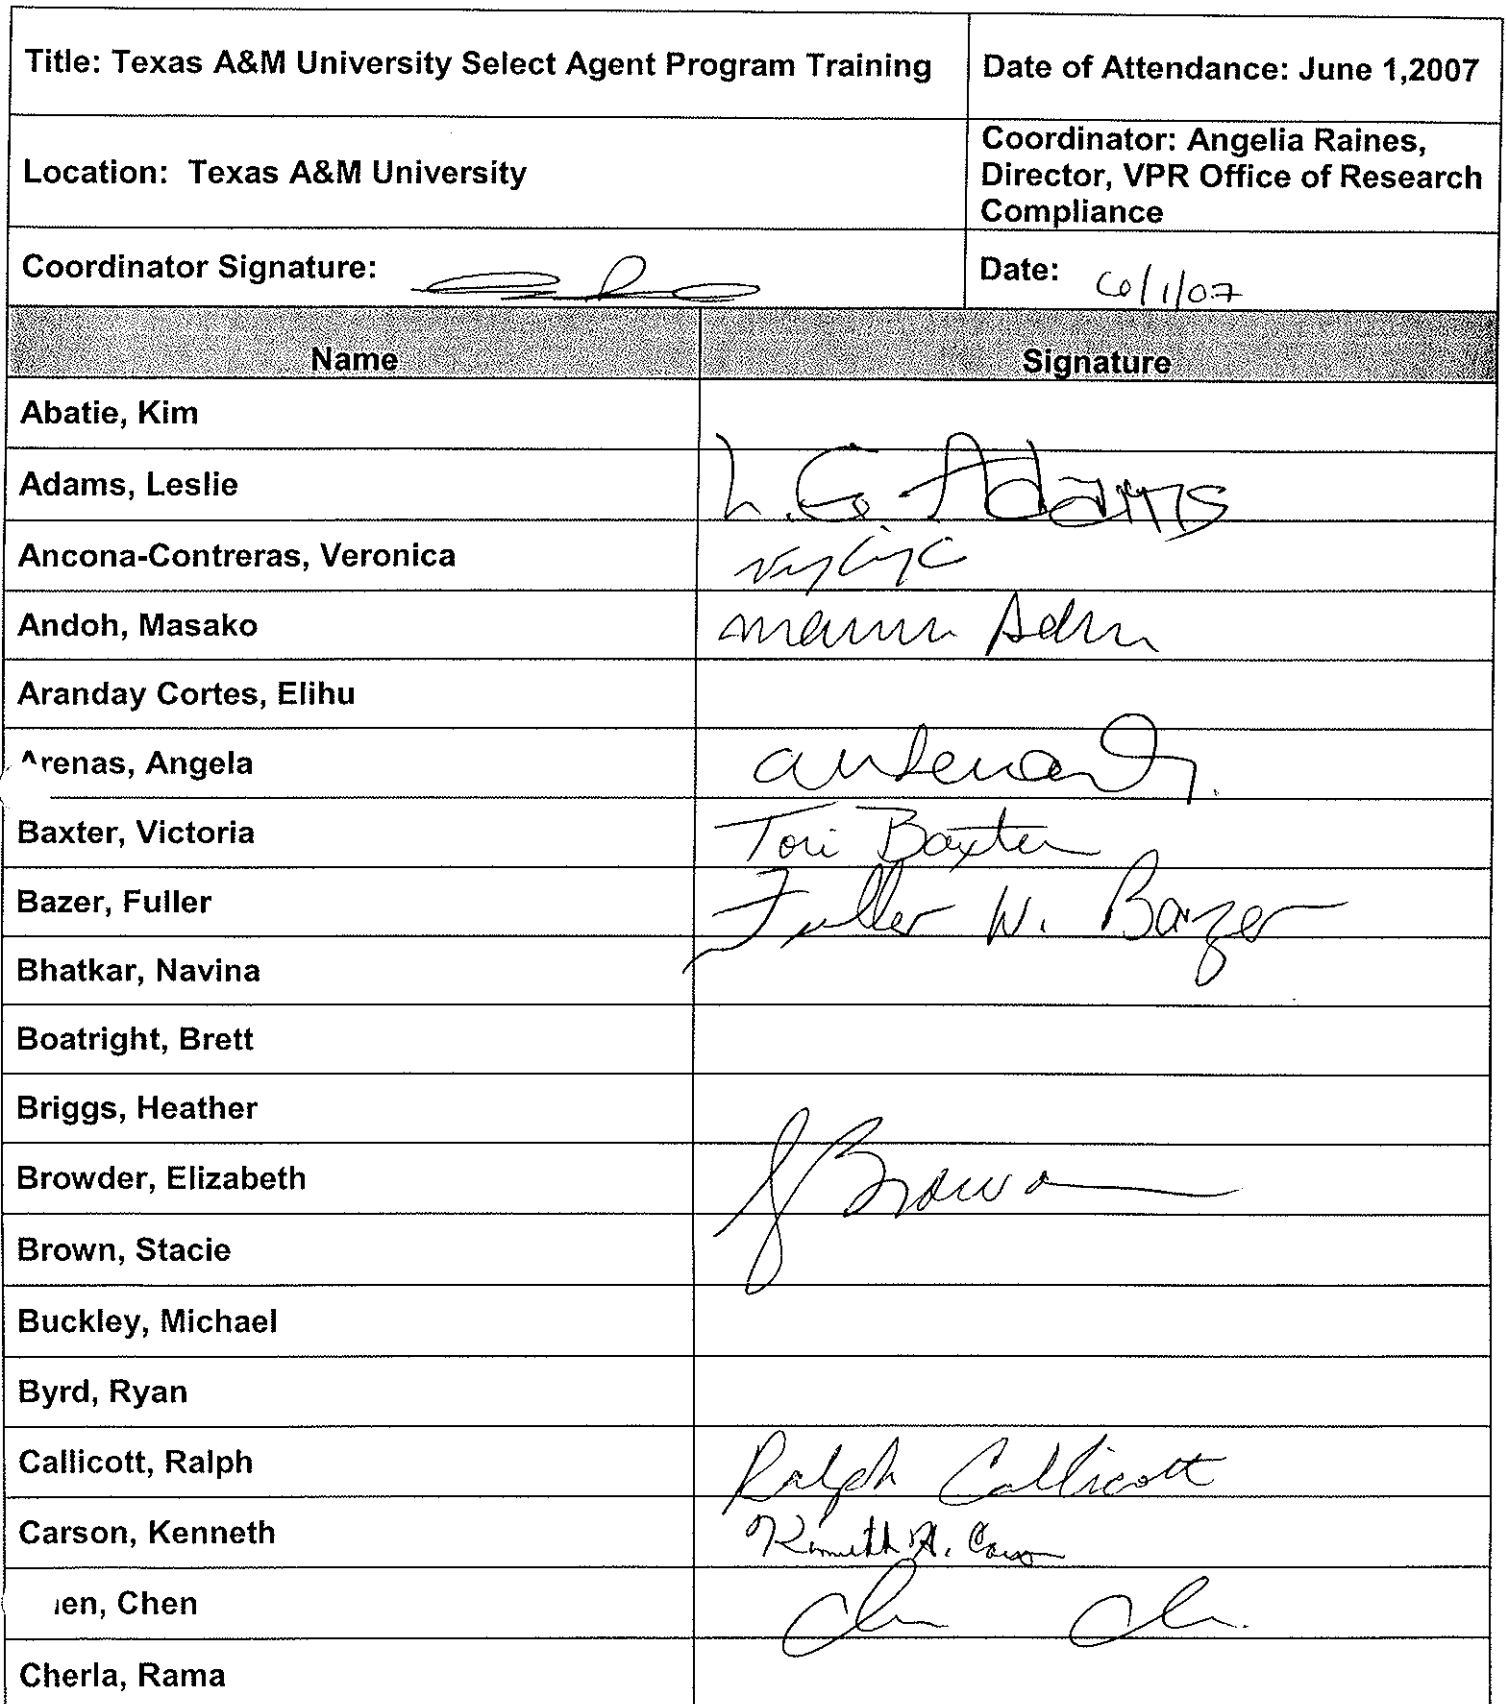 Title: Texas A&M University Select Agent Program Training
Date of Attendance: June 1,2007
Location: Texas A&M University
Coordinator: Angelia Raines,
Director, VPR Office of Research
Compliance
Coordinator Signature:
Date: 6/1/07
Name
Signature
Abatie, Kim
Adams, Leslie
L. G. Adams
Ancona-Contreras, Veronica
Andoh, Masako
Aranday Cortes, Elihu
Arenas, Angela
Baxter, Victoria
Tori Baxter
Bazer, Fuller
Fuller W. Bazer
Bhatkar, Navina
Boatright, Brett
Briggs, Heather
Browder, Elizabeth
Brown, Stacie
Buckley, Michael
Byrd, Ryan
Callicott, Ralph
Ralph Callicott
Carson, Kenneth
Kenneth A. Carson
en, Chen
Cherla, Rama